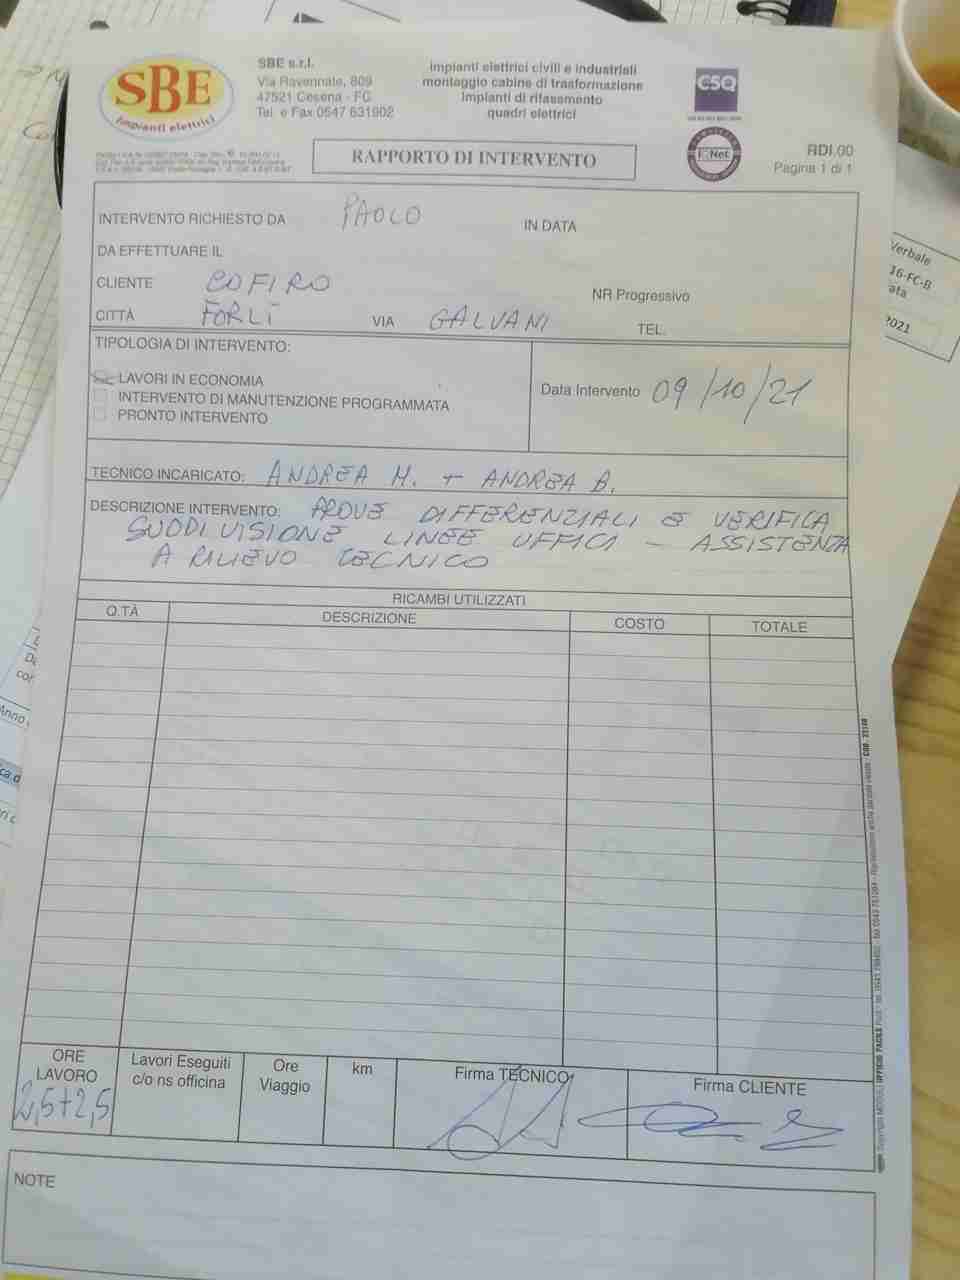 SBE
impianti elettrici
SBE s.r.l.
Via Ravennate, 809
47521 Cesena - FC
Tel. e Fax 0547 631902
impianti elettrici civili e industriali
montaggio cabine di trasformazione
impianti di rifasamento
quadri elettrici
CSQ
IQNet
RAPPORTO DI INTERVENTO
RDI.00
Pagina 1 di 1
INTERVENTO RICHIESTO DA PAOLO IN DATA
DA EFFETTUARE IL
CLIENTE COFIRO NR Progressivo
CITTÀ FORLÌ VIA GALVANI TEL.
TIPOLOGIA DI INTERVENTO:
LAVORI IN ECONOMIA
INTERVENTO DI MANUTENZIONE PROGRAMMATA
PRONTO INTERVENTO
Data Intervento 09/10/21
TECNICO INCARICATO: ANDREA M. + ANDREA B.
DESCRIZIONE INTERVENTO: PROVE DIFFERENZIALI E VERIFICA
SUDDIVISIONE LINEE UFFICI - ASSISTENZA
A RILIEVO TECNICO
RICAMBI UTILIZZATI
Q.TÀ DESCRIZIONE COSTO TOTALE
ORE LAVORO
2,5+2,5
Lavori Eseguiti
c/o ns officina
Ore
Viaggio
km
Firma TECNICO
Firma CLIENTE
NOTE
Verbale
16-FC-B
ata
2021
Anno